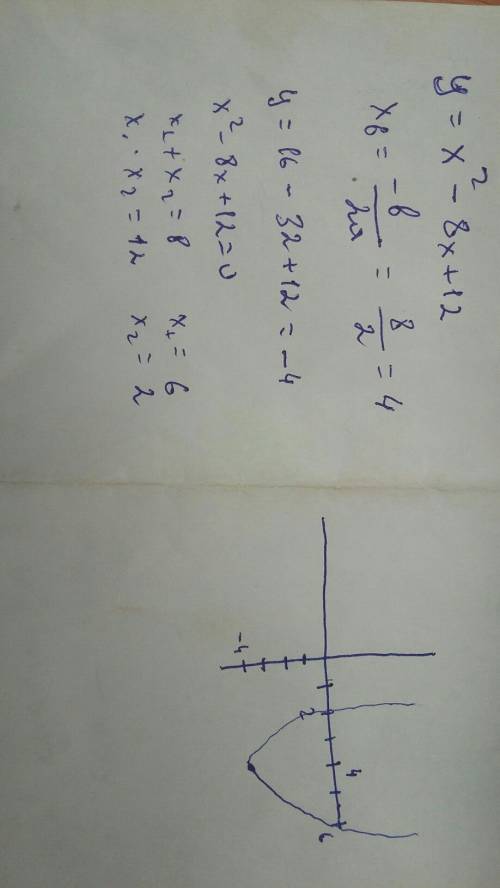 y = x² - 8x + 12
xв = -в/2а = 8/2 = 4
y = 16 - 32 + 12 = -4
x² - 8x + 12 = 0
x₁ + x₂ = 8 x₁ = 6
x₁ · x₂ = 12 x₂ = 2
2
4
6
-4